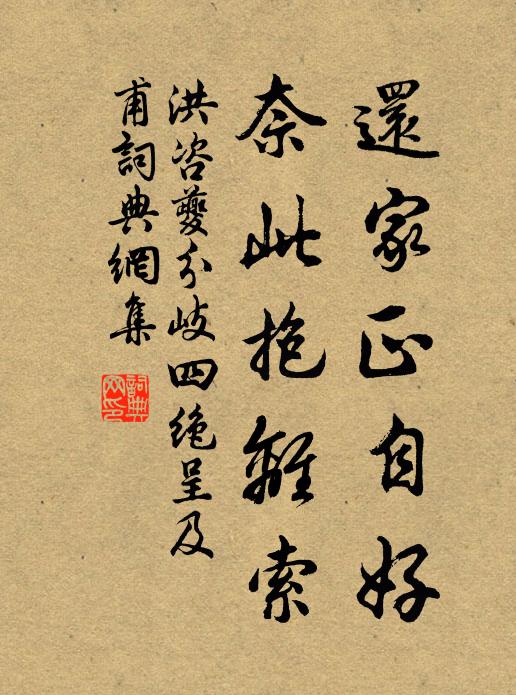 還家正自好
奈此抱離索
洪咨夔分歧四絶呈及
甫詞典網集
詞典網印